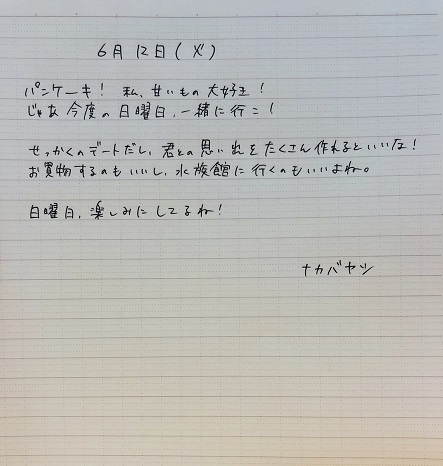 6月12日(火)
パンケーキ! 私、甘いもの大好き!
じゃあ今度の日曜日、一緒に行こ!
せっかくのデートだし、君との思い出をたくさん作れるといいな!
お買物するのもいいし、水族館に行くのもいいよね。
日曜日、楽しみにしてるね!
ナカバヤシ